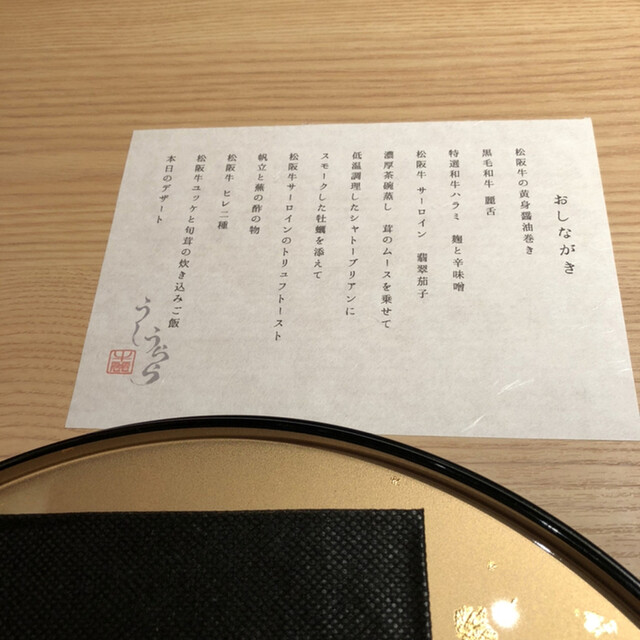 おしながき
松阪牛の黄身醤油巻き
黒毛和牛 麗舌
特選和牛ハラミ 麹と辛味噌
松阪牛 サーロイン 翡翠茄子
濃厚茶碗蒸し 茸のムースを乗せて
低温調理したシャトーブリアンに
スモークした牡蠣を添えて
松阪牛サーロインのトリュフトースト
帆立と蕪の酢の物
松阪牛 ヒレ二種
松阪牛ユッケと旬茸の炊き込みご飯
本日のデザート
うしうらら